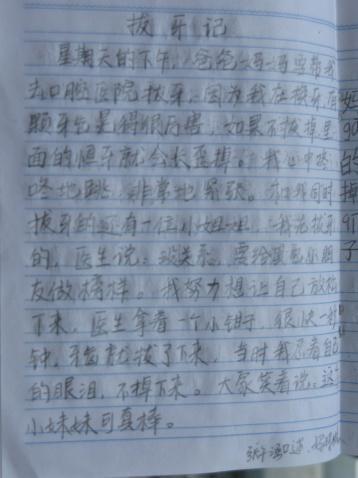 拔牙记
星期天的下午，爸爸妈妈要带我
去口腔医院拔牙，因为我在换牙,有
颗牙
很厉害，如果不拔掉里
面的恒牙就会长歪掉。我心中咚
咚地跳，非常地紧张。同时
拔牙的还有一位小姐姐，我怕拔牙
的，医生说：没关系，要给里面小朋
友做榜样。我努力想让自己放松
下来，医生拿着一个小钳子，很快一分
钟，牙齿就拔了下来，当时我忍着自己
的眼泪，不掉下来。大家笑着说：这个
小妹妹可真棒。
的
子